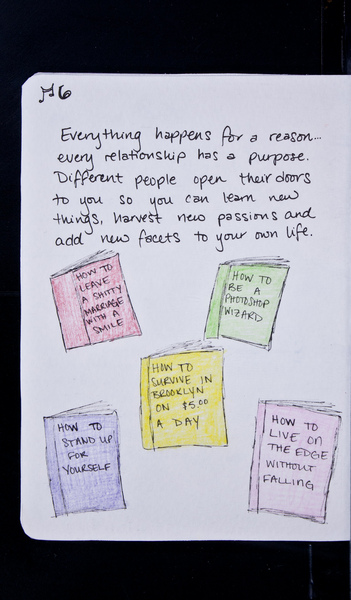 #6
Everything happens for a reason...
every relationship has a purpose.
Different people open their doors
to you so you can learn new
things, harvest new passions and
add new facets to your own life.
HOW TO
LEAVE
A SHITTY
MARRIAGE
WITH A
SMILE
HOW TO
BE A
PHOTOSHOP
WIZARD
HOW TO
SURVIVE IN
BROOKLYN
ON $5.00
A DAY
HOW TO
STAND UP
FOR
YOURSELF
HOW TO
LIVE ON
THE EDGE
WITHOUT
FALLING